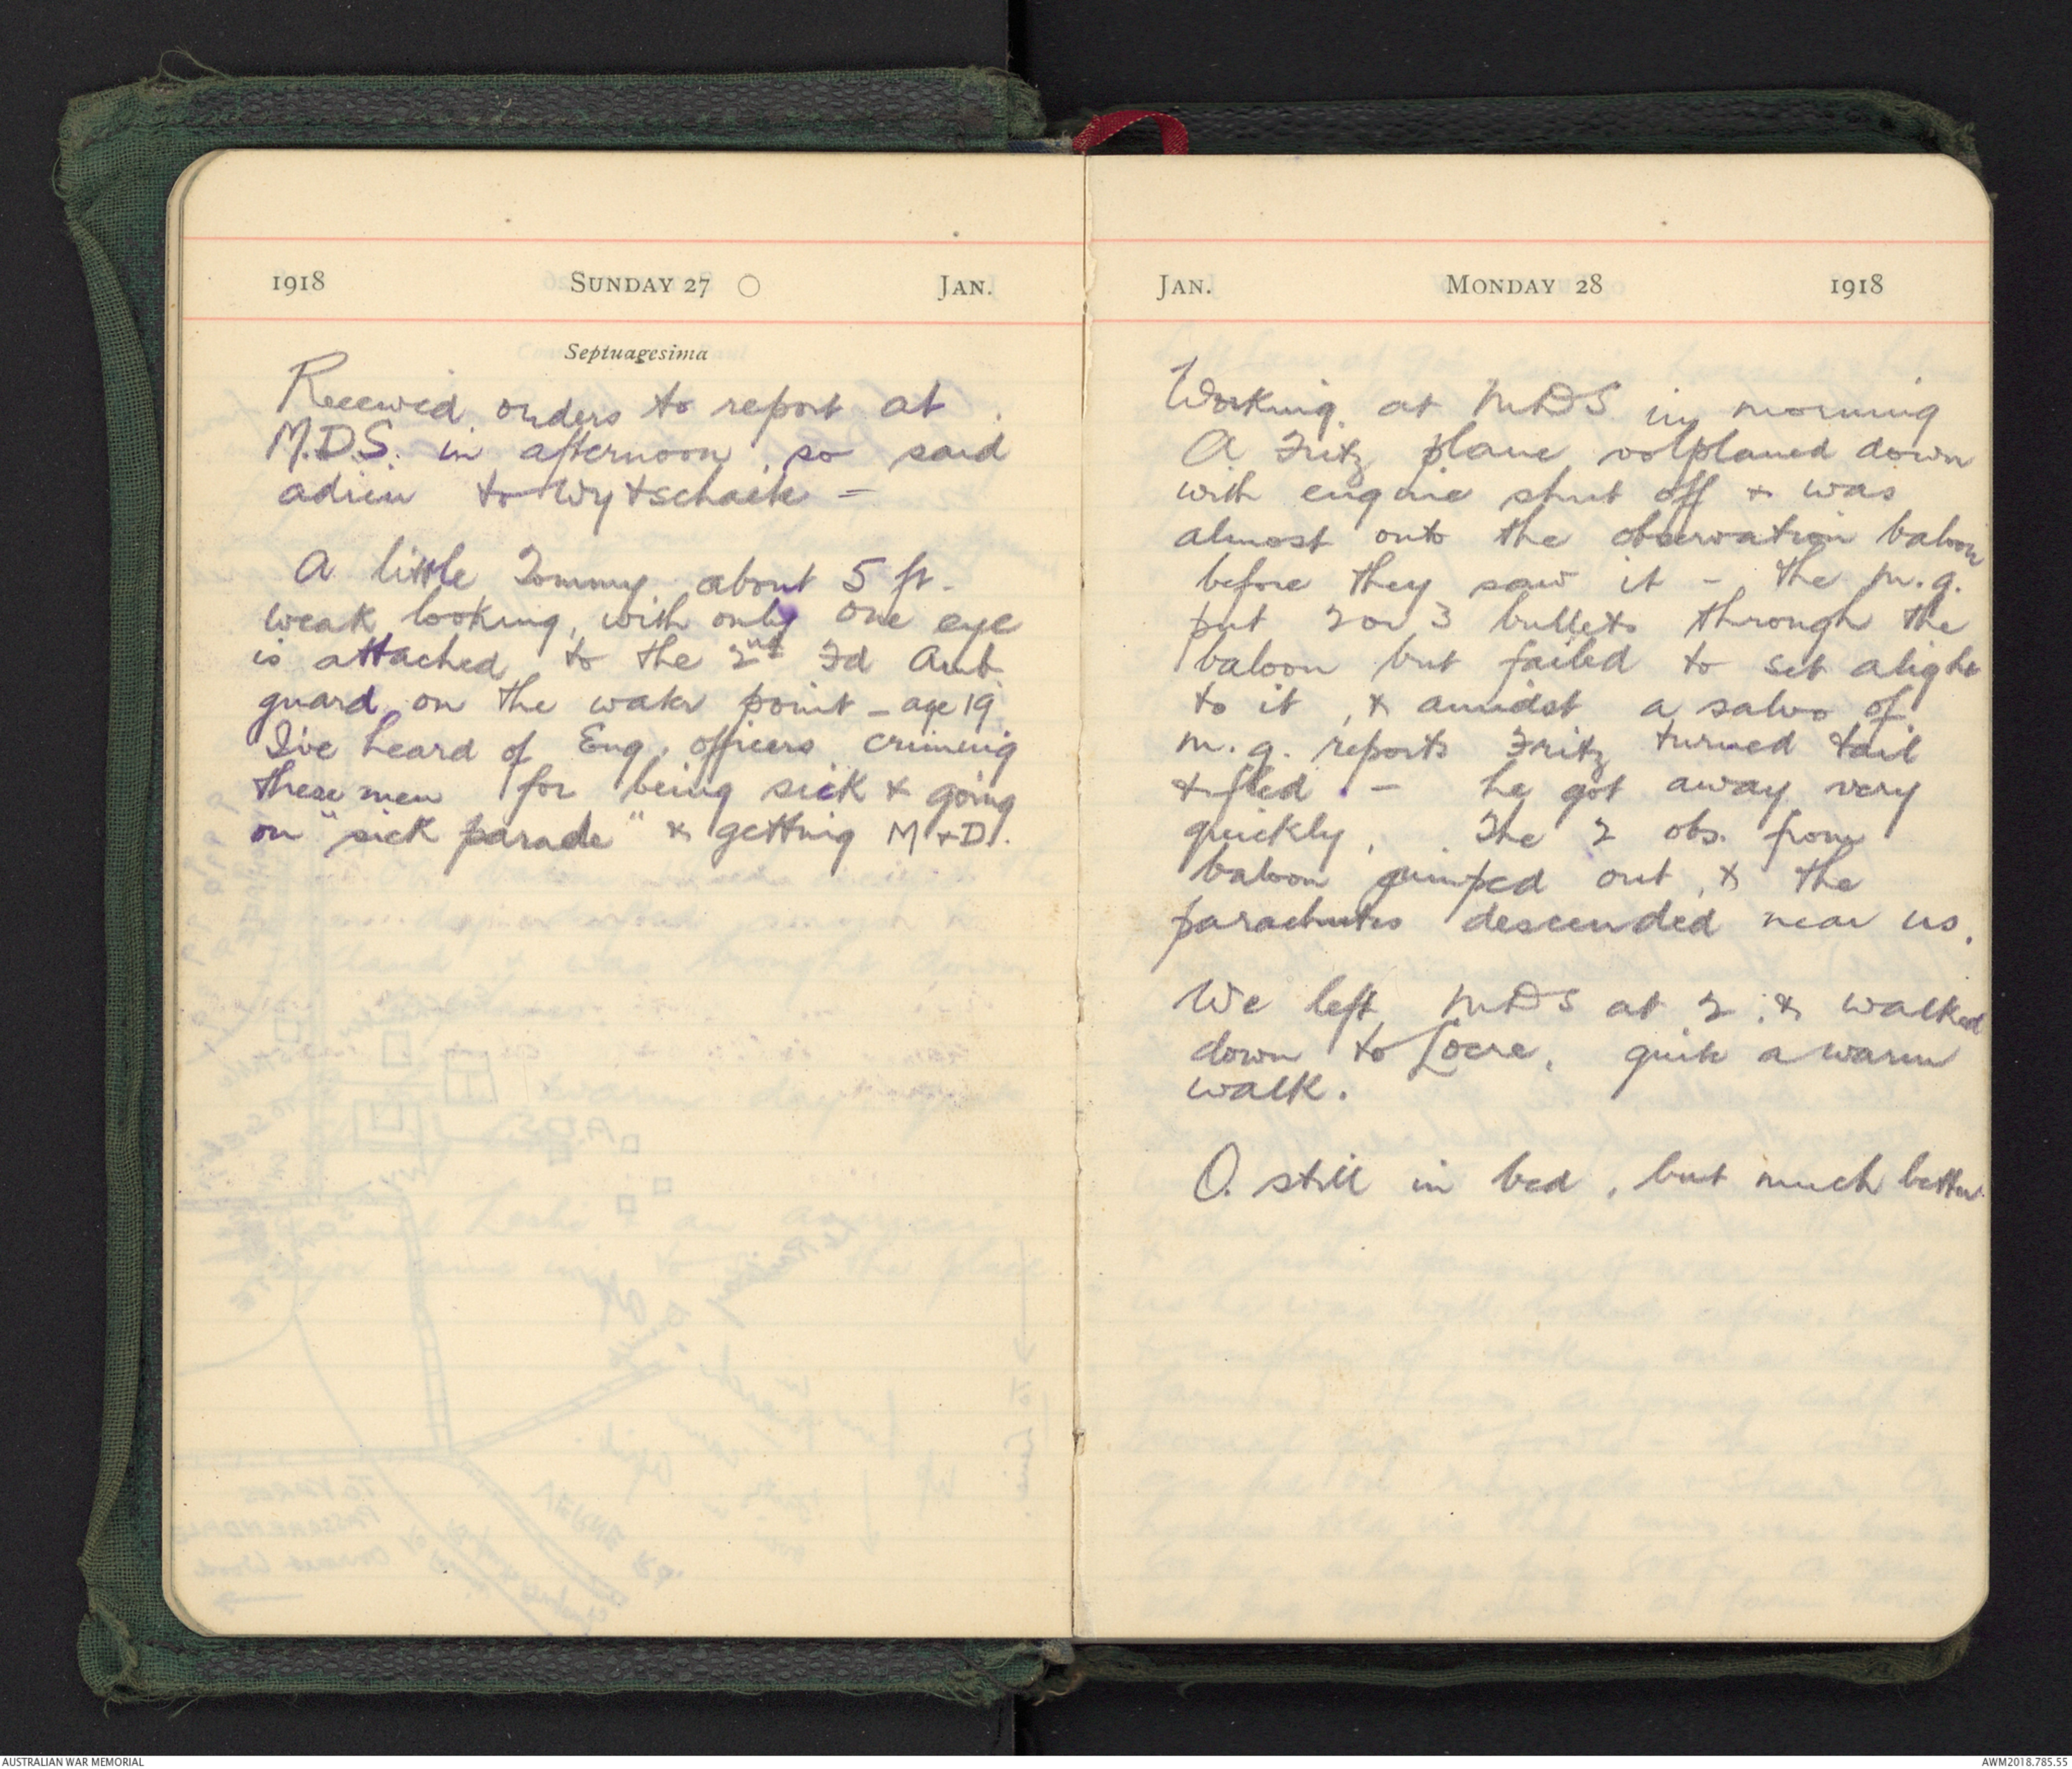 1918 SUNDAY 27 JAN.
Septuagesima
Received orders to report at
M.D.S. in afternoon, so said
adieu to Wytschaete -
A little Tommy about 5 ft.
weak looking, with only one eye
is attached to the 2nd Fd Amb
guard on the water point - age 19
I've heard of Eng. officers criming
these men for being sick & going
on "sick parade" & getting M & D.
JAN. MONDAY 28 1918
Working at MDS in morning
A Fritz plane volplaned down
with engine shut off & was
almost onto the observation baloon
before they saw it - the m.g.
put 2 or 3 bullets through the
baloon but failed to set alight
to it, & amidst a salvo of
m.g. reports Fritz turned tail
& fled. - he got away very
quickly. The 2 obs. from
baloon jumped out, & the
parachutes descended near us.
We left MDS at 2, & walked
down to Locre, quite a warm
walk.
O. still in bed, but much better.
AUSTRALIAN WAR MEMORIAL
AWM2018.785.55